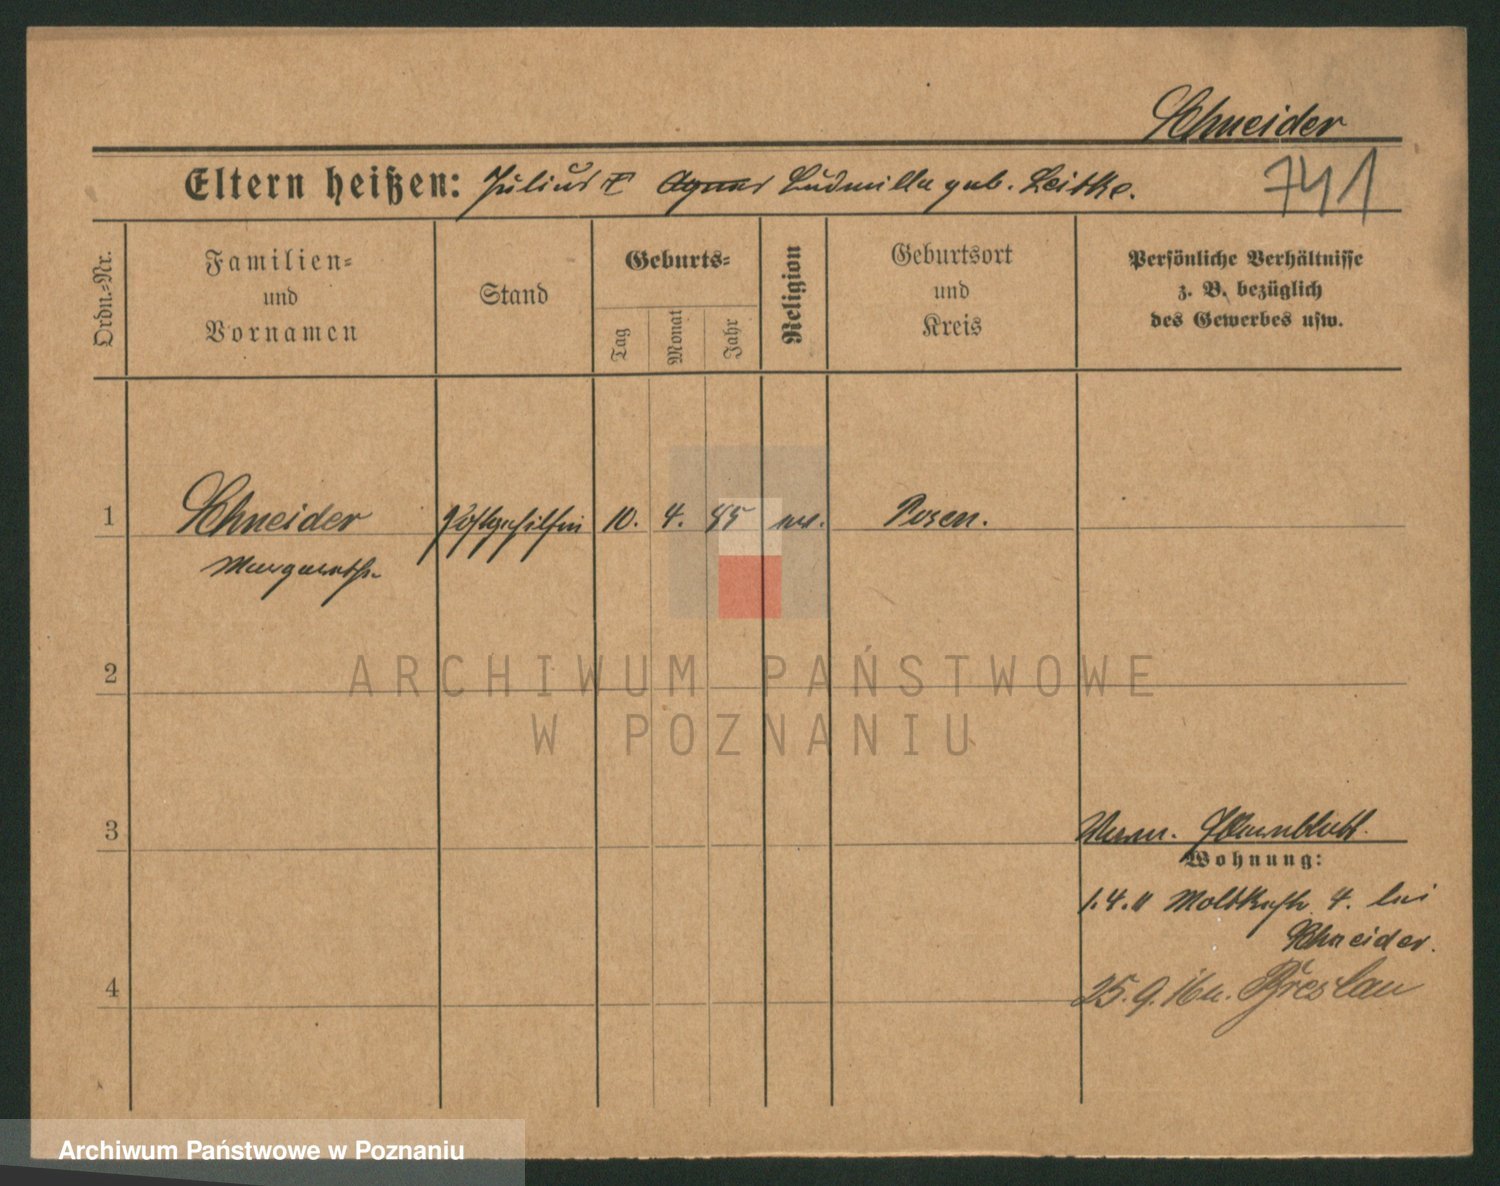 Schneider
741
Eltern heißen: Julius Agnes Ludmilla geb. Leitke.
Ordn.-Nr.
Familien-
und
Vornamen
Stand
Geburts-
Tag
Monat
Jahr
Religion
Geburtsort
und
Kreis
Persönliche Verhältnisse
z. B. bezüglich
des Gewerbes usw.
1
Schneider
Margarethe
Postgehilfin
10.
4.
Posen.
2
ARCHIWUM PAŃSTWOWE
W POZNANIU
3
Wohnung:
1.4.11 Moltkestr. 4. bei
Schneider.
4
25.9.16 n. Breslau
Archiwum Państwowe w Poznaniu